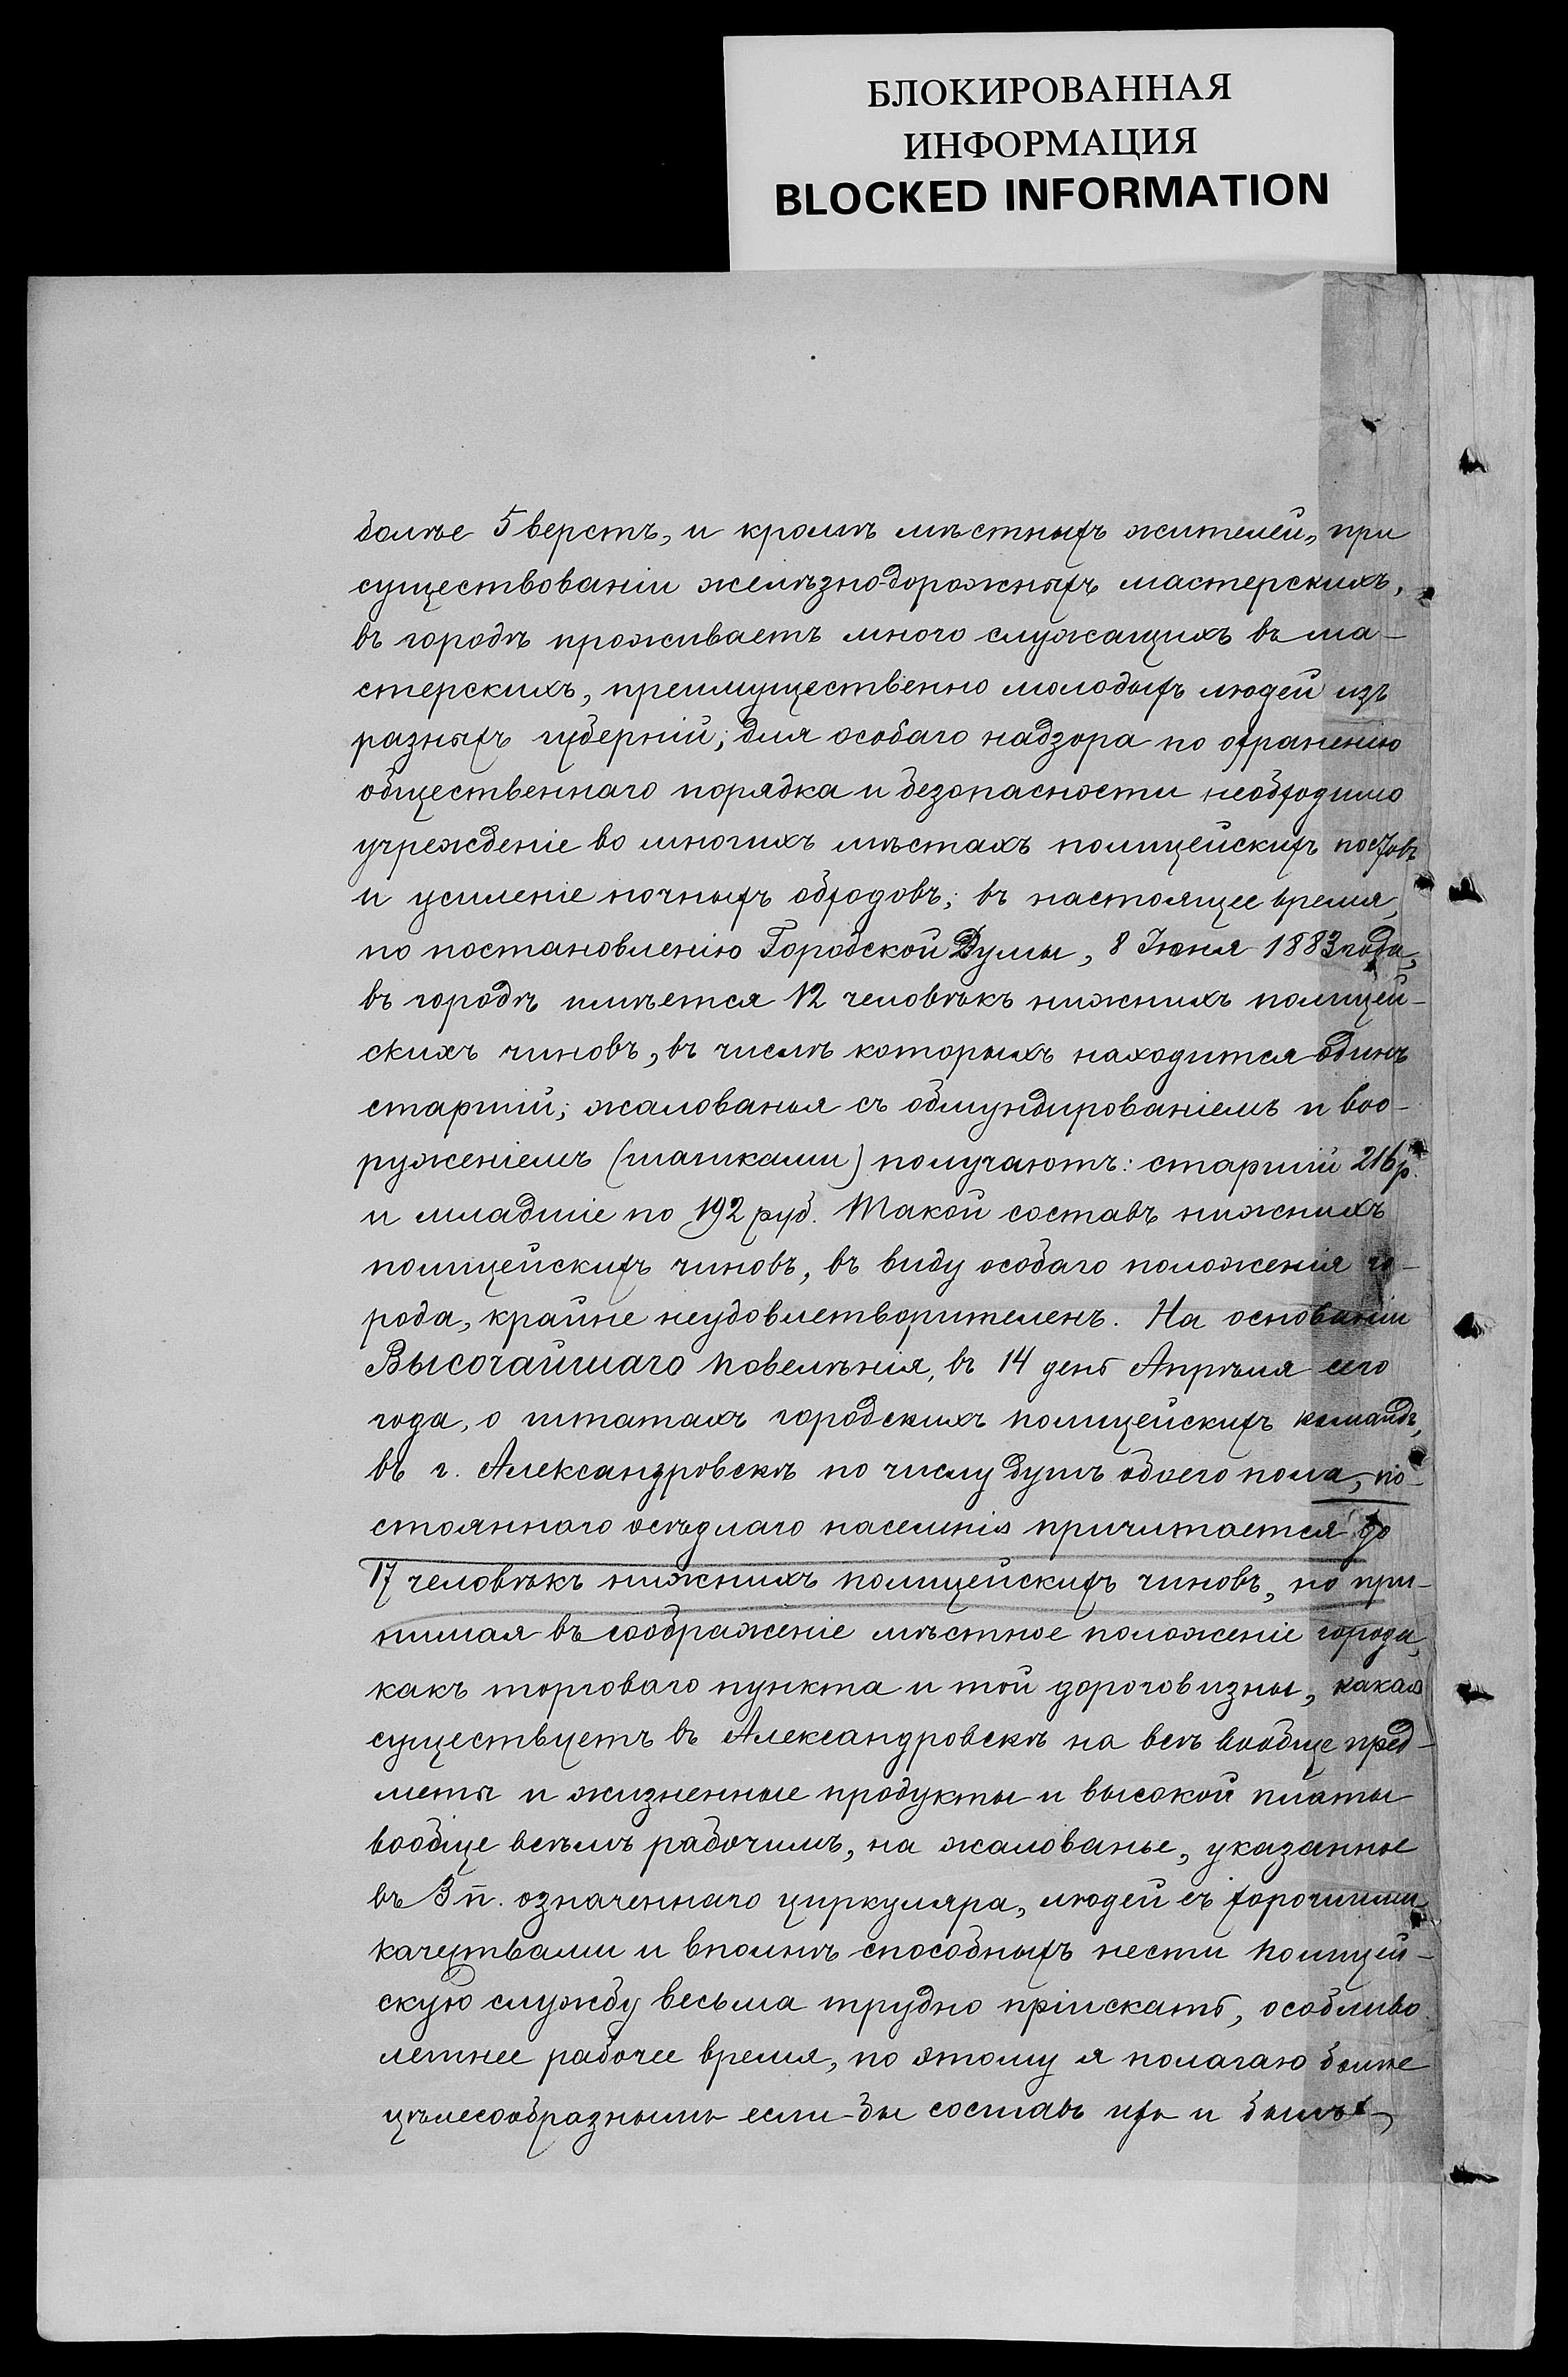 БЛОКИРОВАННАЯ
ИНФОРМАЦИЯ
BLOCKED INFORMATION
болѣе 5 верстъ, и кромѣ мѣстныхъ жителей, при
существованіи желѣзно-дорожныхъ мастерскихъ,
въ городѣ проживаетъ много служащихъ въ ма-
стерскихъ, преимущественно молодыхъ людей изъ
разныхъ губерній; для особаго надзора по охраненію
общественнаго порядка и безопасности необходимо
учрежденіе во многихъ мѣстахъ полицейскихъ постовъ
и усиленіе ночныхъ обходовъ; въ настоящее время,
по постановленію Городской Думы, 8 Іюня 1883 года,
въ городѣ имѣется 12 человѣкъ нижнихъ полицей-
скихъ чиновъ, въ числѣ которыхъ находится одинъ
старшій; жалованья съ обмундированіемъ и воо-
руженіемъ (шашками) получаютъ: старшій 216 р.
и младшіе по 192 руб. Такой составъ нижнихъ
полицейскихъ чиновъ, въ виду особаго положенія го-
рода, крайне неудовлетворителенъ. На основаніи
Высочайшаго повелѣнія, въ 14 день Апрѣля сего
года, о штатахъ городскихъ полицейскихъ командъ,
въ г. Александровскѣ по числу душъ обоего пола, по-
стояннаго осѣдлаго населенія причитается до
17 человѣкъ нижнихъ полицейскихъ чиновъ, но при-
нимая въ соображеніе мѣстное положеніе города,
какъ торговаго пункта и той дороговизны, какая
существуетъ въ Александровскѣ на всѣ вообще пред-
меты и жизненные продукты и высокой платы
вообще всѣмъ рабочимъ, на жалованье, указанное
въ 3 п. означеннаго циркуляра, людей съ хорошими
качествами и вполнѣ способныхъ нести полицей-
скую службу весьма трудно пріискать, особливо
летнее рабочее время, по этому я полагаю болѣе
цѣлесообразнымъ если-бы составъ ихъ и былъ